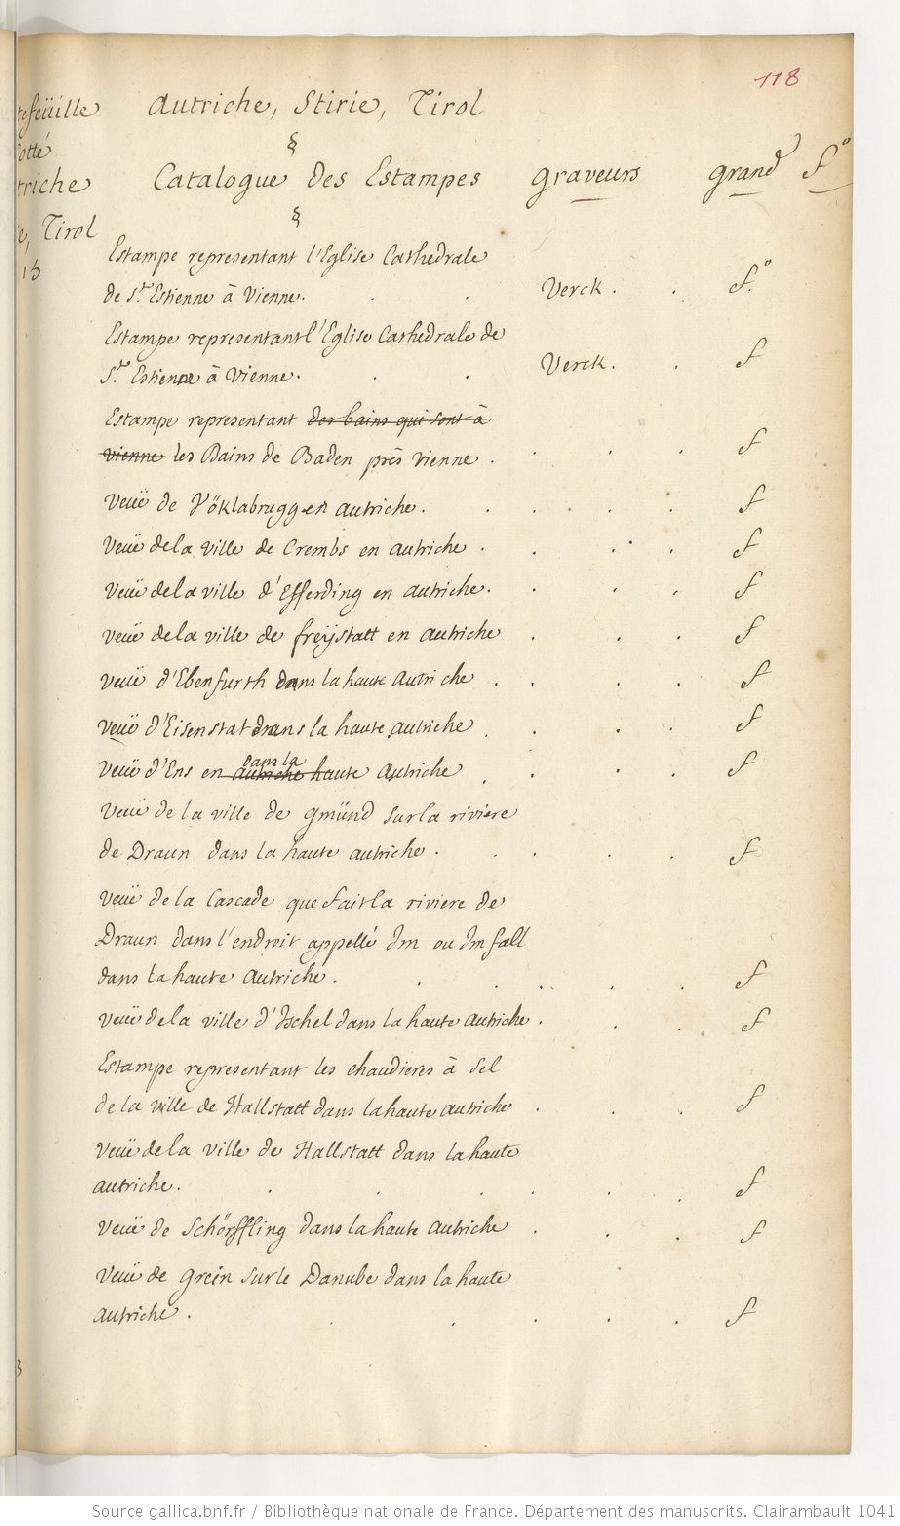 118
tefeüille
Cotté
triche
e, Tirol
15
Autriche, Stirie, Tirol
§
Catalogue des Estampes graveurs grand f.º
§
Estampe representant l'Eglise Cathedrale
de S.t Estienne à Vienne. . . Verck . . f.º
Estampe representant l'Eglise Cathedrale de
S.t Estienne à Vienne. . . Verck . . f
Estampe representant des bains qui sont à
vienne les Bains de Baden près Vienne . . . . f
Veuë de Vöklabruggen autriche . . . . . f
Veuë de la ville de Crembs en autriche . . . . f
Veuë de la ville d'Efferding en autriche . . . . f
Veuë de la ville de freÿstatt en autriche . . . f
Veuë d'Ebenfurth dans la haute Autriche . . . . f
Veuë d'Eisenstat dans la haute autriche . . . . f
dans la
Veuë d'Ens en autriche haute Autriche . . . . f
Veuë de la ville de gmünd sur la riviere
de Draun dans la haute autriche . . . . . f
Veuë de la Cascade que fait la riviere de
Draun dans l'endroit appellé Im ou Im fall
dans la haute Autriche . . . . . . f
Veuë de la ville d'Ischel dans la haute Autriche . . . f
Estampe representant les chaudieres à Sel
de la ville de Hallstatt dans la haute autriche . . . f
Veuë de la ville de Hallstatt dans la haute
autriche . . . . . . . f
Veuë de Schörffling dans la haute Autriche . . . f
Veuë de grein sur le Danube dans la haute
autriche . . . . . . f
3
Source gallica.bnf.fr / Bibliothèque nationale de France. Département des manuscrits. Clairambault 1041